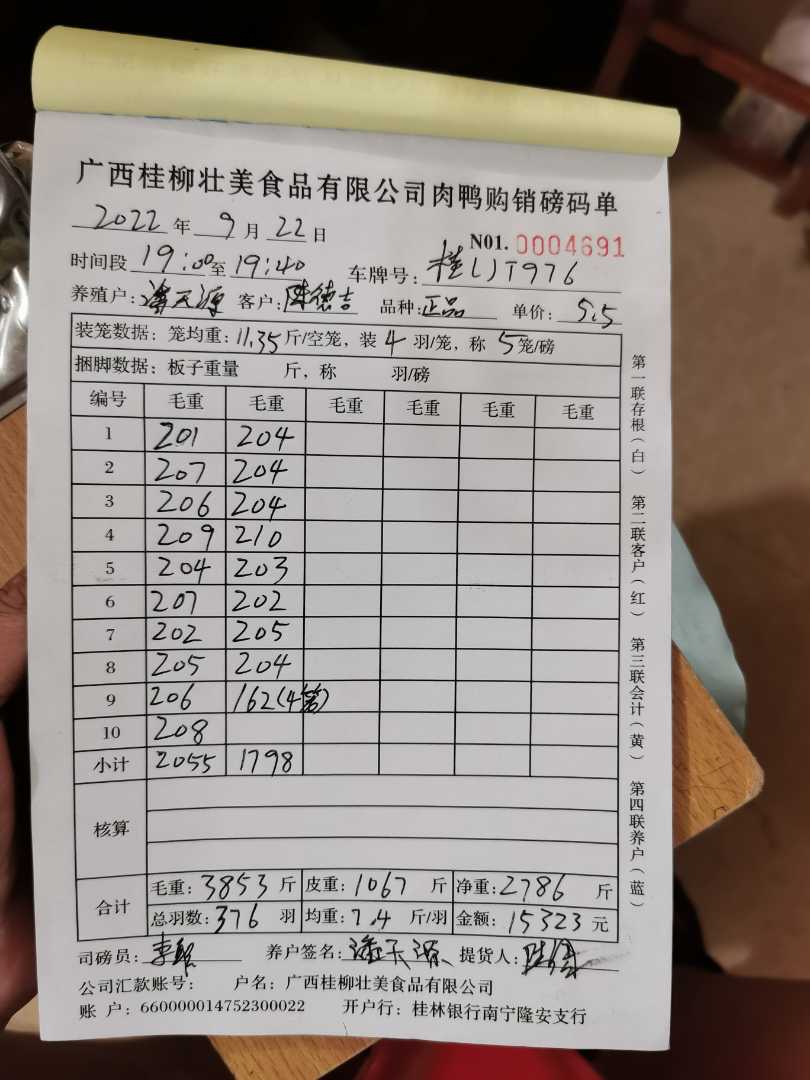 广西桂柳壮美食品有限公司肉鸭购销磅码单
2022 年 9 月 22 日 N01. 0004691
时间段 19:00 至 19:40 车牌号: 桂LJT976
养殖户: 潘天源 客户: 陈德吉 品种: 正品 单价: 5.5
装笼数据: 笼均重: 11.35 斤/空笼, 装 4 羽/笼, 称 5 笼/磅
捆脚数据: 板子重量 斤, 称 羽/磅
编号 毛重 毛重 毛重 毛重 毛重 毛重
1 201 204
2 207 204
3 206 204
4 209 210
5 204 203
6 207 202
7 202 205
8 205 204
9 206 162(4笼)
10 208
小计 2055 1798
核算
合计
毛重: 3853 斤 皮重: 1067 斤 净重: 2786 斤
总羽数: 376 羽 均重: 7.4 斤/羽 金额: 15323 元
司磅员: 养户签名: 潘天源 提货人:
公司汇款账号: 户名: 广西桂柳壮美食品有限公司
账 户: 660000014752300022 开户行: 桂林银行南宁隆安支行
第一联存根(白) 第二联客户(红) 第三联会计(黄) 第四联养户(蓝)